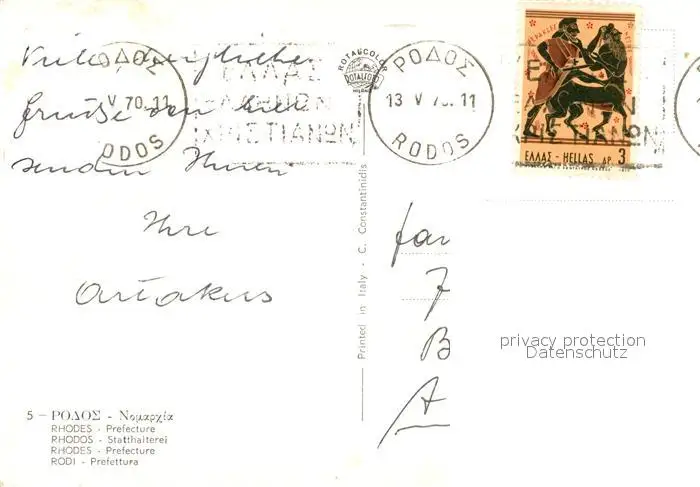 Viele herzliche
Grüsse von hier
senden Ihnen
Ihre
ΡΟΔΟΣ
V 70. 11
RODOS
ΕΛΛΑΣ
ΕΛΛΗΝΩΝ
ΧΡΙΣΤΙΑΝΩΝ
ROTALCOLOR
ROTALFOTO
MILANO
ΡΟΔΟΣ
13 V 70. 11
RODOS
ΕΛΛΑΣ - HELLAS ΔΡ. 3
Printed in Italy - C. Constantinidis
fam
J
B
A
privacy protection
Datenschutz
5 – ΡΟΔΟΣ - Νομαρχία
RHODES - Prefecture
RHODOS - Statthalterei
RHODES - Prefecture
RODI - Prefettura